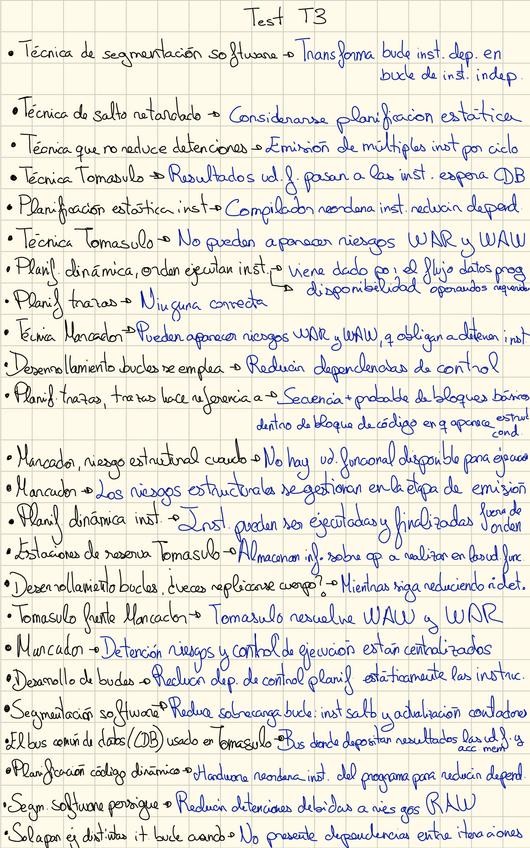 Test T3
• Técnica de segmentación software → Transforma bucle inst. dep. en
bucle de inst. indep.
• Técnica de salto retardado → Considerarse planificacion estática
• Técnica que no reduce detenciones → Emisión de múltiples inst por ciclo
• Técnica Tomasulo → Resultados ud. f. pasan a las inst. espera CDB
• Planificación estática inst → Compilador reordena inst. reducir depend.
• Técnica Tomasulo → No pueden aparecer riesgos WAR y WAW
• Planif. dinámica, orden ejecutan inst. → viene dado por el flujo datos prog
→ disponibilidad operandos requerido
• Planif trazas → Ninguna correcta
• Técnia Marcador → Pueden aparecer riesgos WAR y WAW, q obligan a detener inst
• Desenrollamiento bucles se emplea → Reducir dependencias de control
• Planif. trazas, trazas hace referencia a → Secuencia + probable de bloques básicos
dentro de bloque de código en q aparece estruct cond.
• Marcador, riesgo estructural cuando → No hay ud. funcional disponible para ejecuc
• Marcador → Los riesgos estructurales se gestionan en la etapa de emisión
• Planif dinámica inst. → Inst. pueden ser ejecutadas y finalizadas fuera de orden
• Estaciones de reserva Tomasulo → Almacenan inf. sobre op a realizar en las ud. func.
• Desenrollamiento bucles, ¿veces replicarse cuerpo? → Mientras siga reduciendo n det.
• Tomasulo frente Marcador → Tomasulo resuelve WAW y WAR
• Marcador → Detención riesgos y control de ejecución están centralizados
• Desarrollo de bucles → Reducir dep. de control planif estáticamente las instruc.
• Segmentación software → Reduce sobrecarga bucle: inst salto y actualización contadores
• El bus común de datos (CDB) usado en Tomasulo → Bus donde depositan resultados las ud. f. y
acc mem
• Planificación código dinámico → Hardware reordena inst. del programa para reducir depend.
• Segm. software persigue → Reducir detenciones debidas a riesgos RAW
• Solapar ej distintas it. bucle cuando → No presente dependencias entre iteraciones